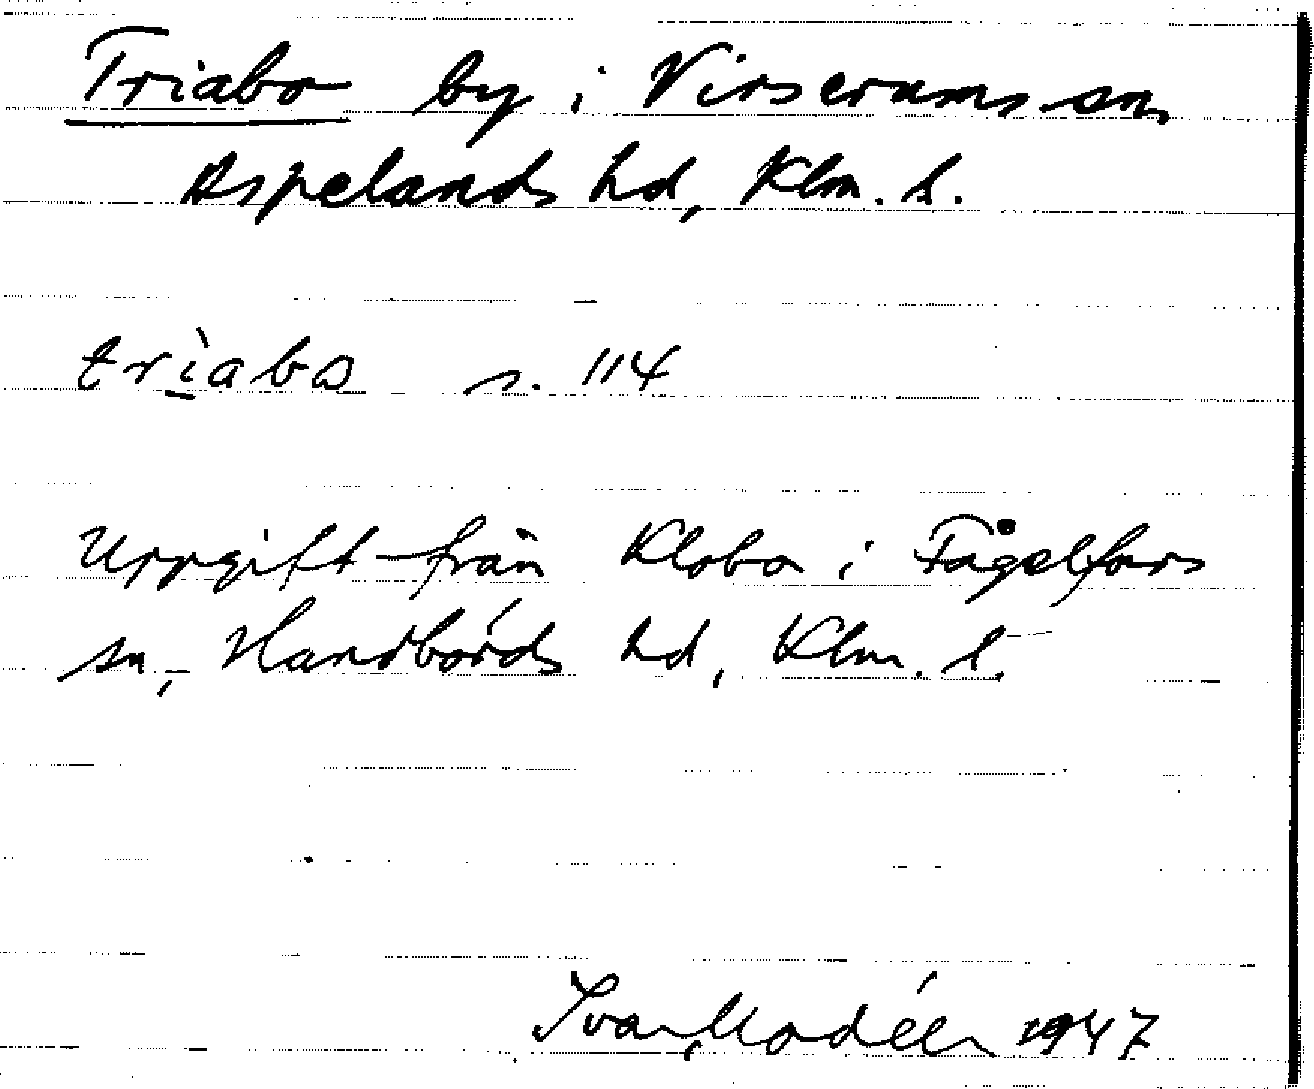 Triabo by i Virserums sn,
Aspelands hd, Klm. l.
trìabo s. 114
Uppgift från Klobo i Fågelfors
sn, Handbörds hd, Klm. l.
Ivar Modéer 1947